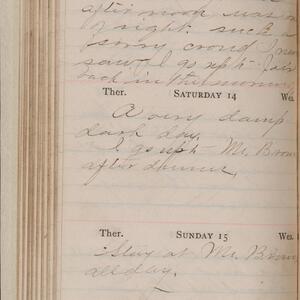 after noon was on
right such a
sorry crowd I never
saw, I go up to fair
back in the morning
Ther. SATURDAY 14 Wea.
A very damp
dark day.
I go up to Mr. Brown
after dinner.
Ther. SUNDAY 15 Wea.
Stay at Mr. Brown
all day.